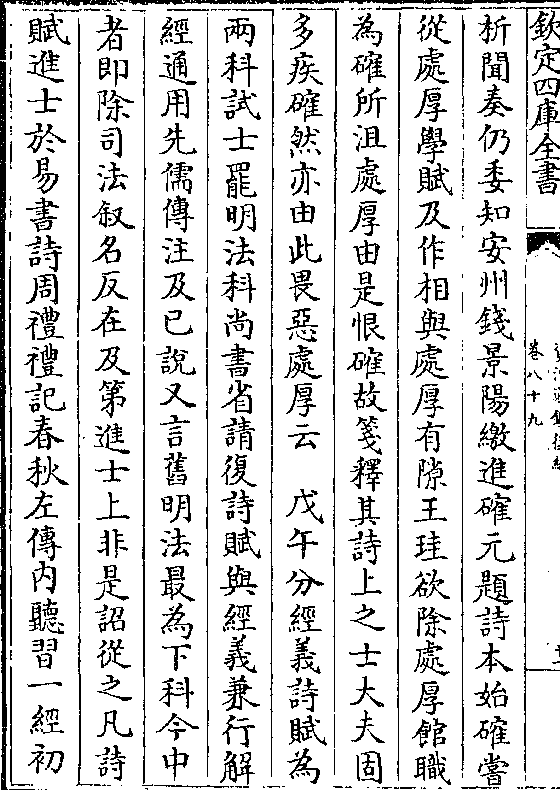 欽定四庫全書
卷八十九
析聞奏仍委知安州錢景陽繳進確元題詩本始確嘗
從處厚學賦及作相與處厚有隙王珪欲除處厚館職
為確所沮處厚由是恨確故箋釋其詩上之士大夫固
多疾確然亦由此畏惡處厚云　戊午分經義詩賦為
兩科試士罷明法科尚書省請復詩賦與經義兼行解
經通用先儒傳注及已說又言舊明法最為下科今中
者即除司法叙名反在及第進士上非是詔從之凡詩
賦進士於易書詩周禮禮記春秋左傳內聽習一經初